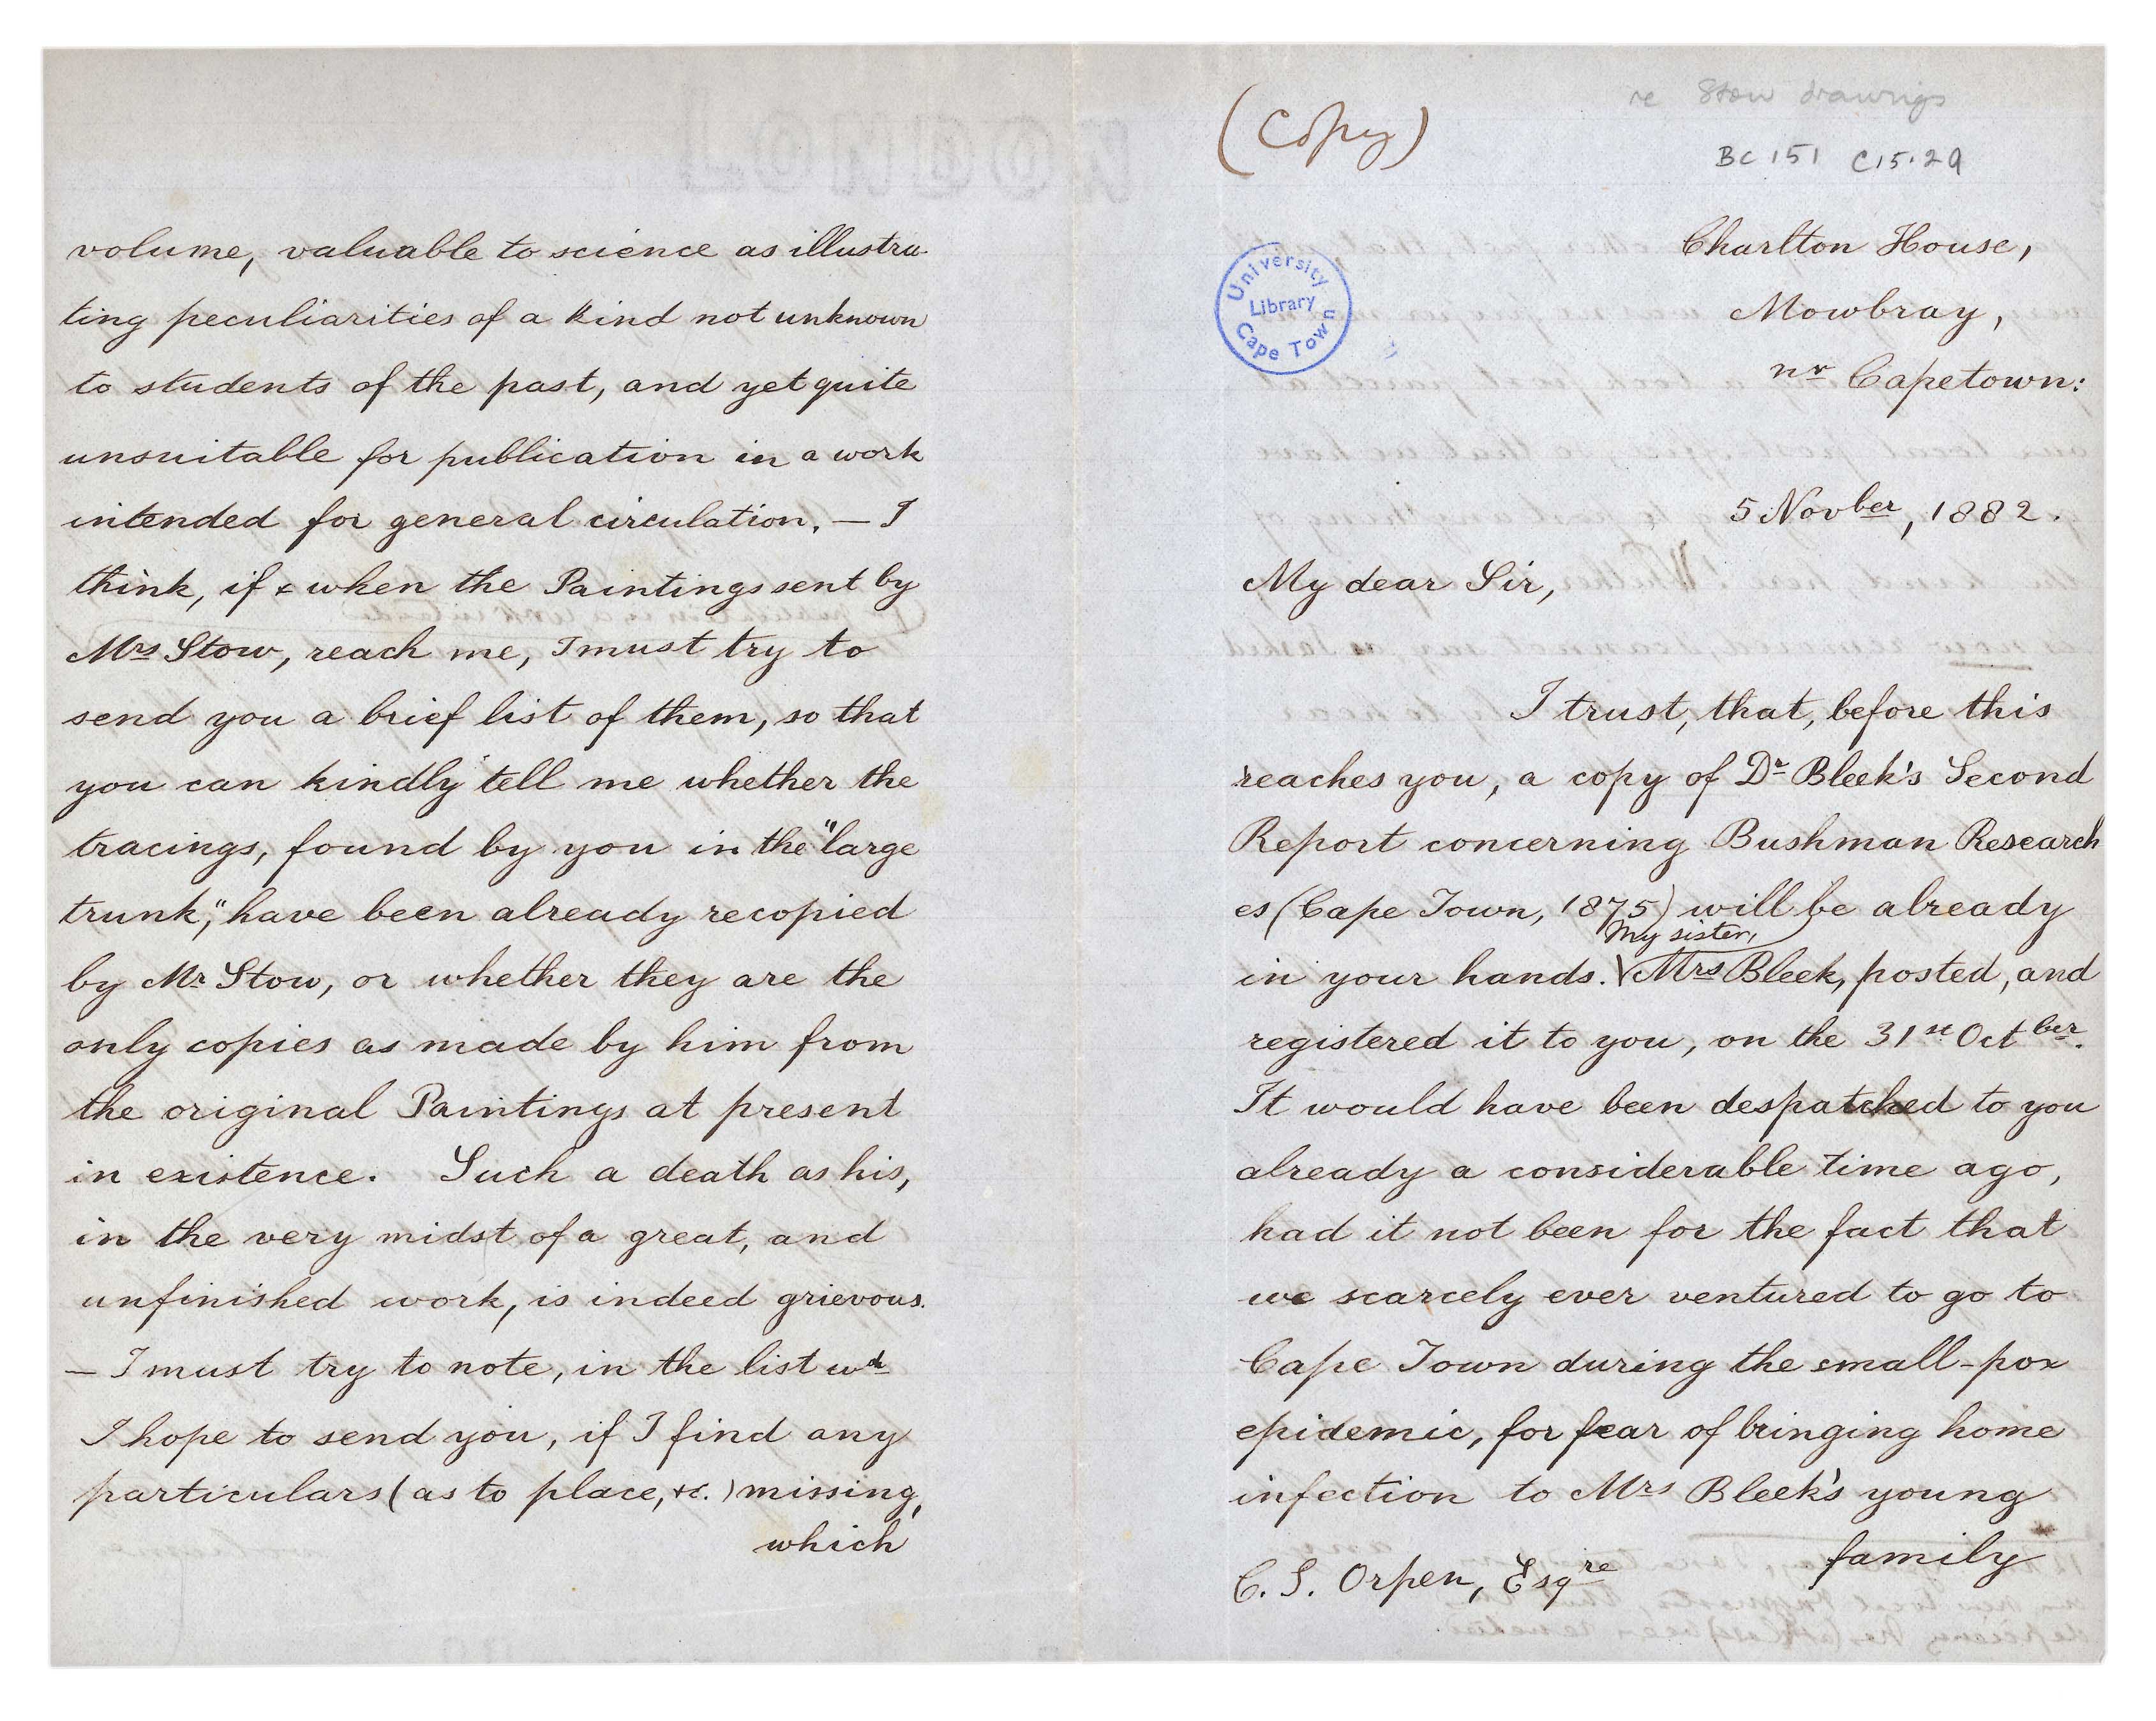 (Copy)
re Stow drawings
BC 151 C15.29
University Library Cape Town
Charlton House,
Mowbray,
nr Capetown:
5 Novber, 1882.
My dear Sir,
I trust, that, before this
reaches you, a copy of Dr Bleek's Second
Report concerning Bushman Research
es (Cape Town, 1875) will be already
My sister,
in your hands. Mrs Bleek, posted, and
registered it to you, on the 31st Octber.
It would have been despatched to you
already a considerable time ago,
had it not been for the fact that
we scarcely ever ventured to go to
Cape Town during the small-pox
epidemic, for fear of bringing home
infection to Mrs Bleek's young
family
C. S. Orpen, Esqre
volume, valuable to science as illustra-
ting peculiarities of a kind not unknown
to students of the past, and yet quite
unsuitable for publication in a work
intended for general circulation. — I
think, if & when the Paintings sent by
Mrs Stow, reach me, I must try to
send you a brief list of them, so that
you can kindly tell me whether the
tracings, found by you in the "large
trunk," have been already recopied
by Mr Stow, or whether they are the
only copies as made by him from
the original Paintings at present
in existence. Such a death as his,
in the very midst of a great, and
unfinished work, is indeed grievous.
— I must try to note, in the list wch
I hope to send you, if I find any
particulars (as to place, &c.) missing,
which